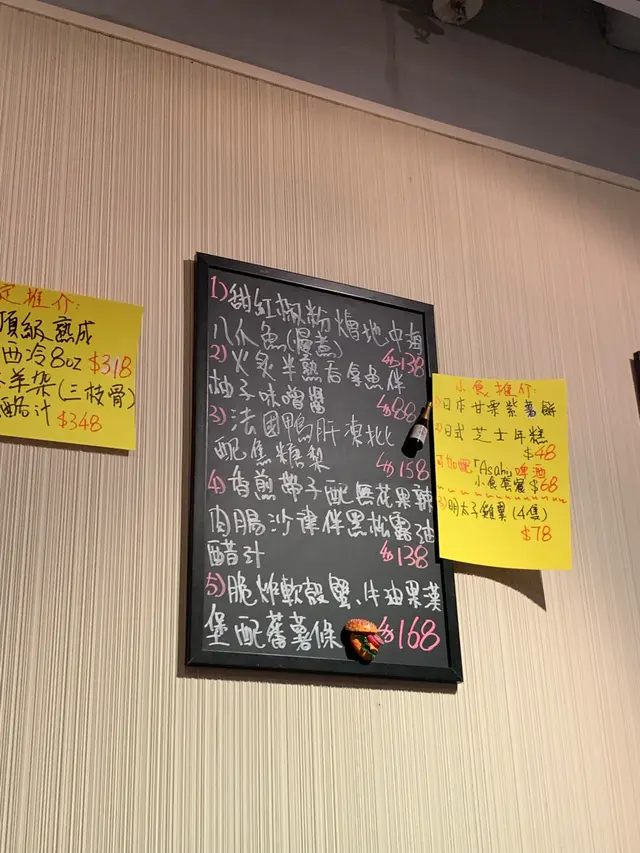 定推介:
頂級熟成
西冷8oz $318
羊架(三枝骨)
酪汁 $348
1)甜紅椒粉燜地中海
八爪魚(慢煮) $138
2)火炙半熟吞拿魚伴
柚子味噌醬 $88
3)法國鴨肝凍批
配焦糖梨 $158
4)香煎帶子配無花果辣
肉腸沙律伴黑松露油
醋汁 $138
5)脆炸軟殼蟹、牛油果漢
堡配蕃薯條 $168
小食推介:
1)日本甘栗紫薯餅
2)日式芝士年糕
$48
可加配「Asahi」啤酒
小食套餐 $68
3)明太子雞翼(4隻)
$78